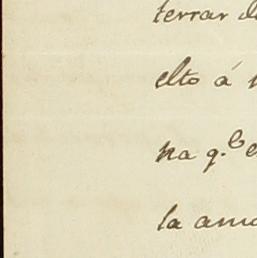 terrar d
elto á
na q.ᵉ e
la amo